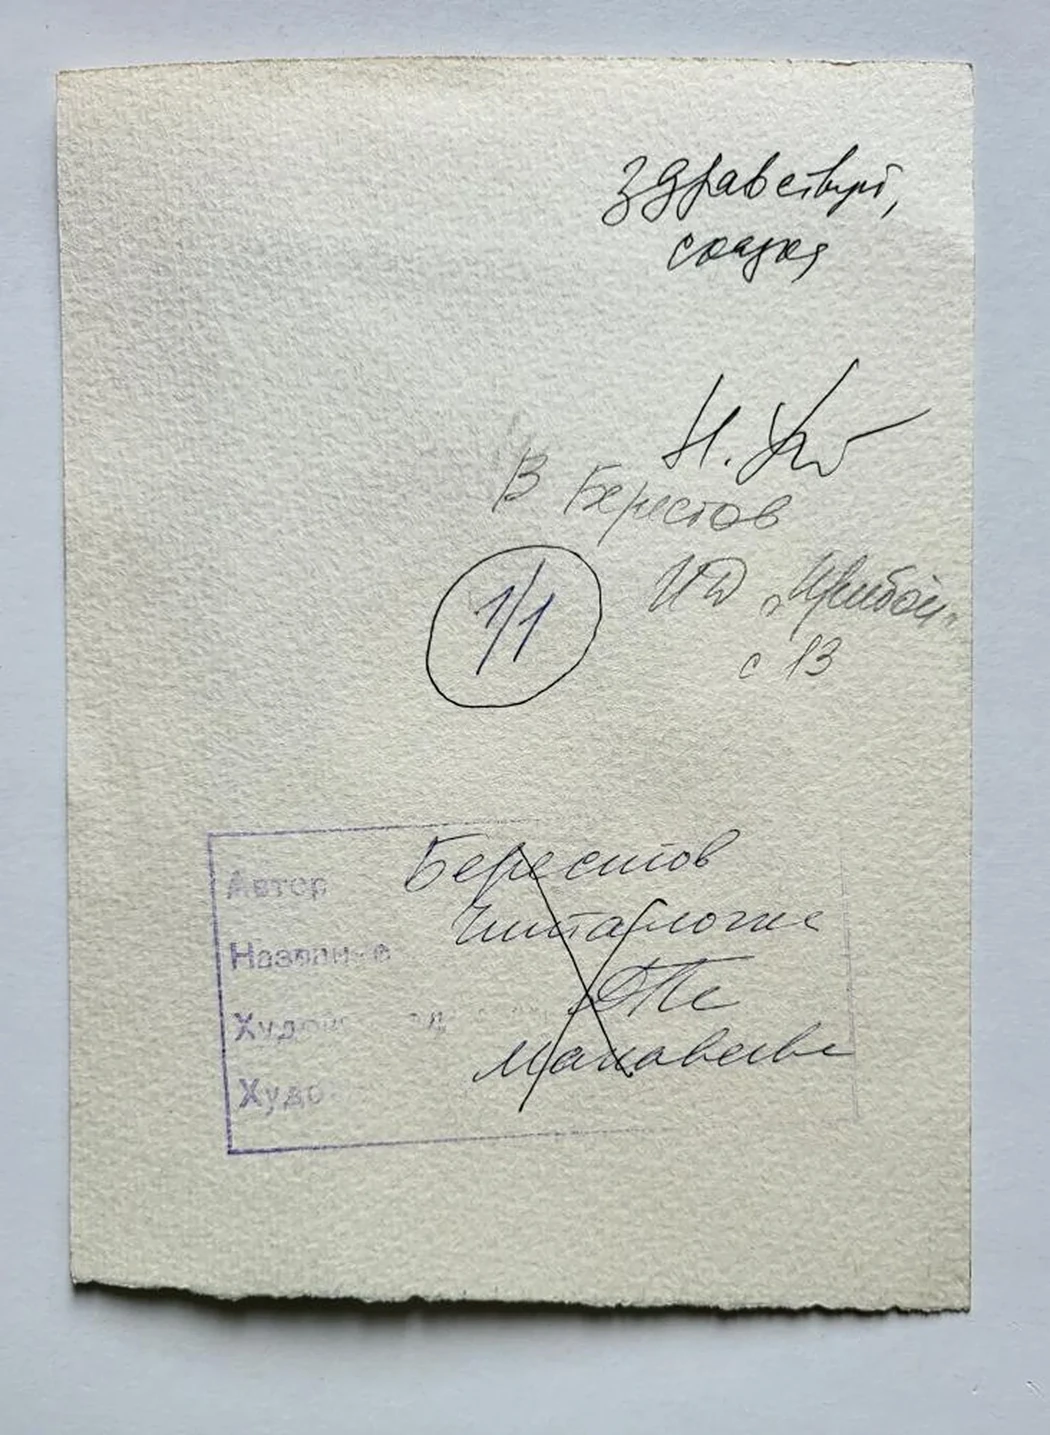 Здравствуй,
сказка
Н. Уст
В Берестов
ИД „Прибой“
с 13
1/1
Автор Берестов
Название Читалочка
Худож
Худо Макавеева